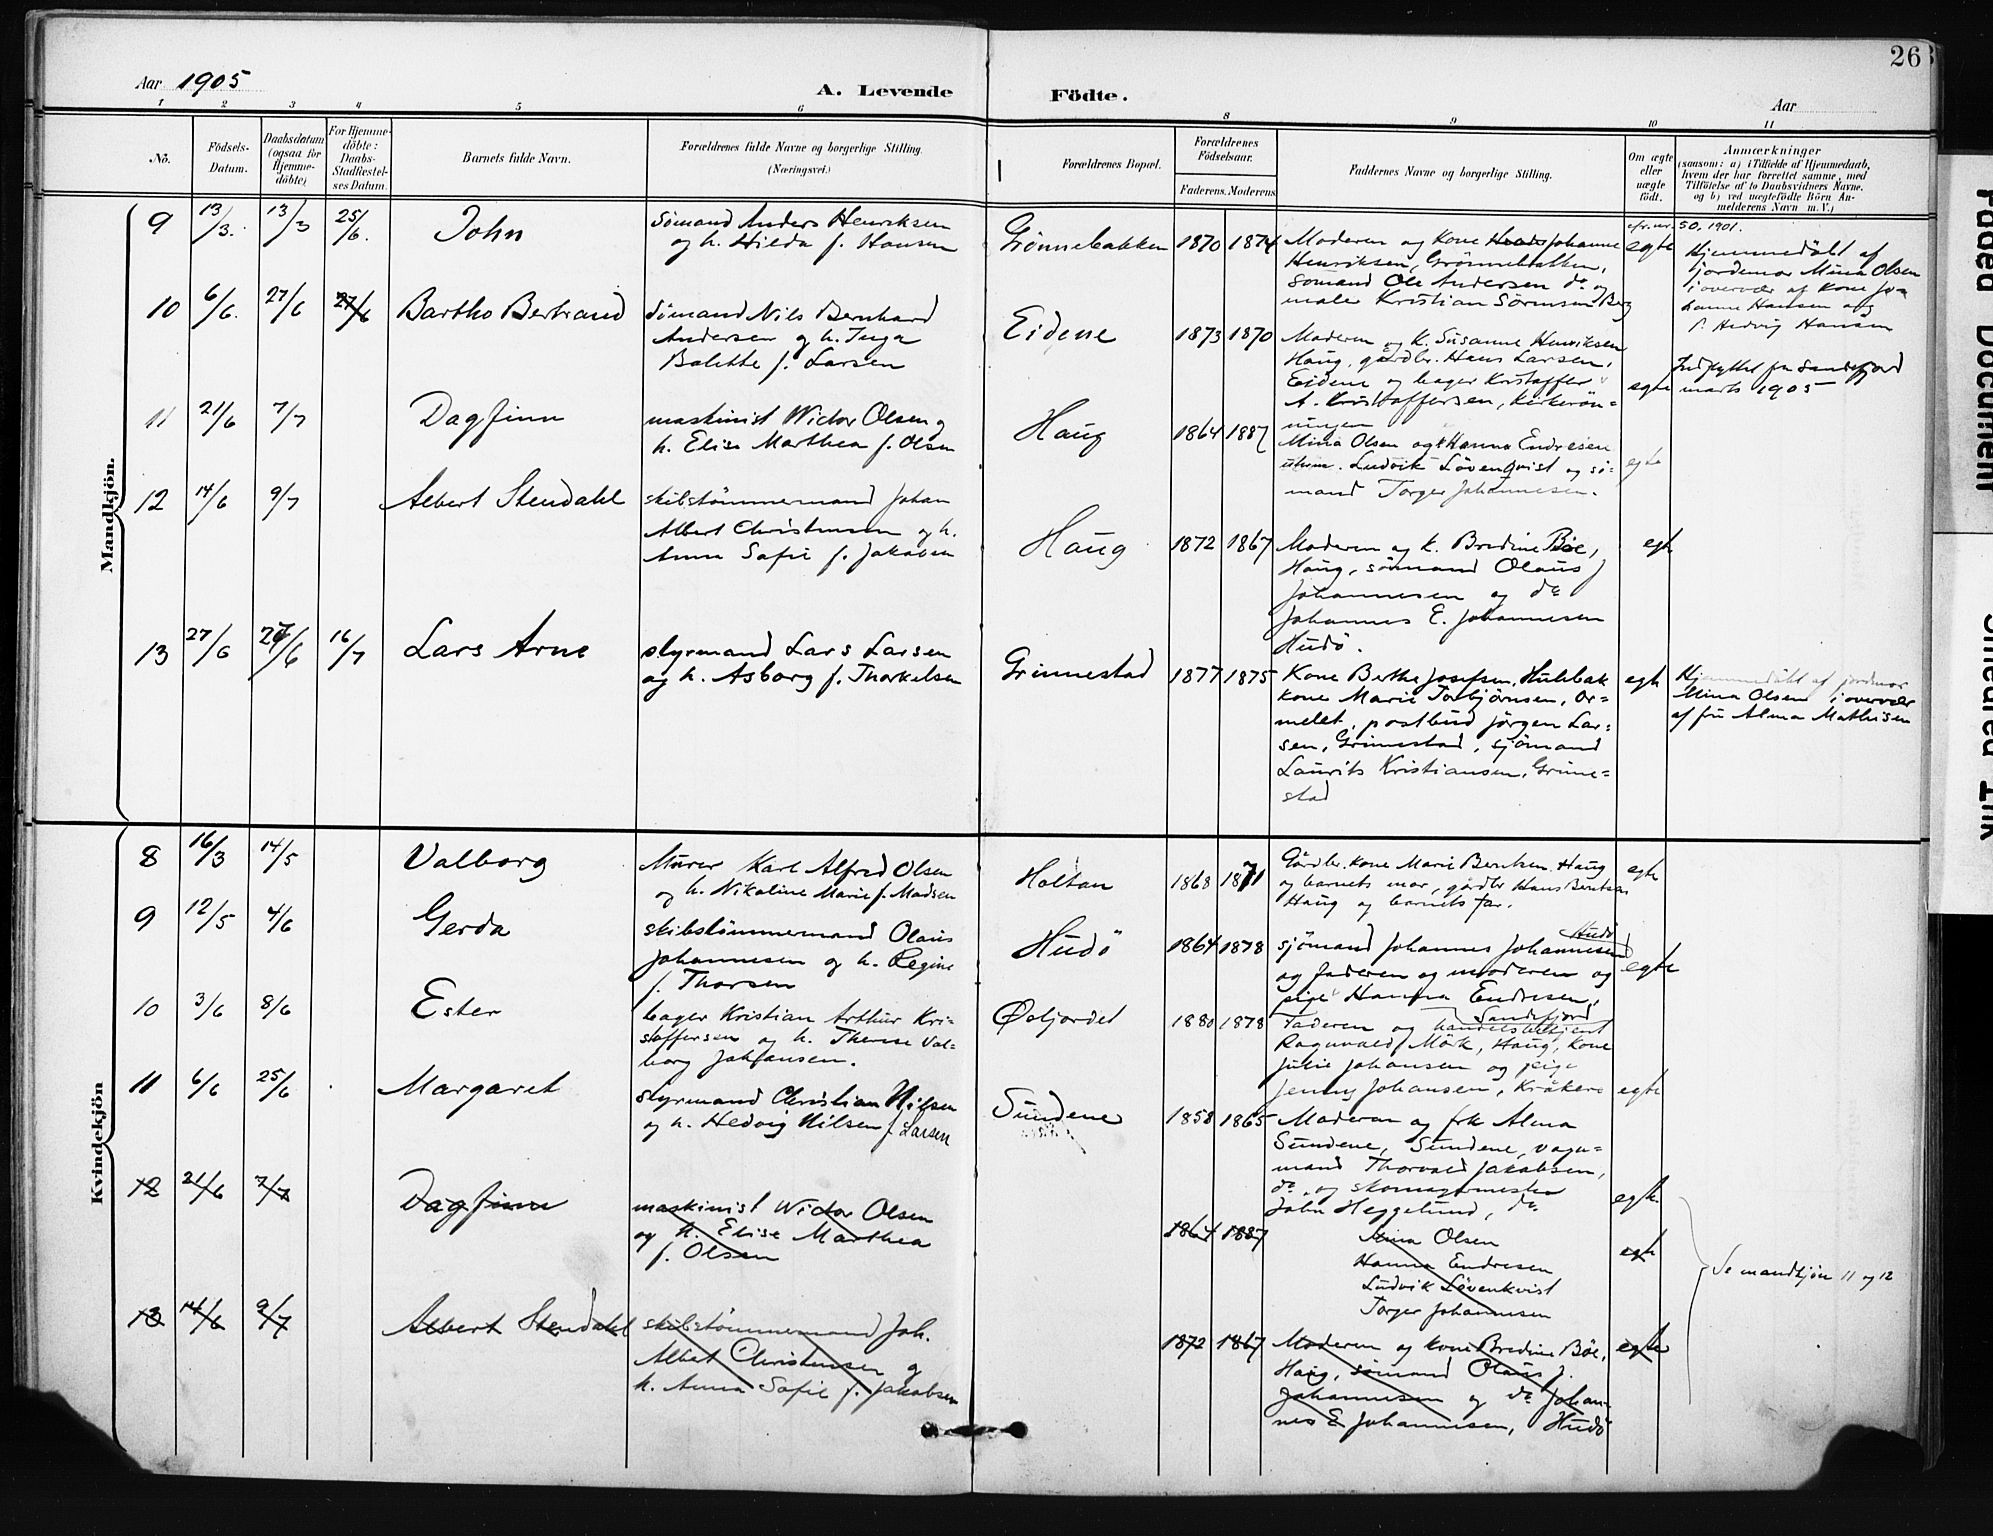 26
Aar 1905
A. Levende Födte.
Aar
1 2 3 4 5 6 8 9 10 11
No.
Födsels-Datum.
Daabsdatum (ogsaa for Hjemmedöbte)
For Hjemmedöbte: Daabs-Stadfæstelses Datum.
Barnets fulde Navn.
Forældrenes fulde Navne og borgerlige Stilling. (Næringsvei.)
Forældrenes Bopæl.
Forældrenes Födselsaar.
Faderens. Moderens
Faddernes Navne og borgerlige Stilling.
Om ægte eller uægte födt.
Anmærkninger
(saasom: a) i Tilfælde af Hjemmedaab,
hvem der har forrettet samme, med
Tilföielse af to Daabsvidners Navne.
og b) ved uægtefödte Börn An-
melderens Navn m. V.)
Mandkjön.
9 13/3. 13/3 25/6. John
Sømand Anders Henriksen
og h. Hilda f. Hansen
Grønnebakken 1870 1874
Moderen og Kone Johanne
Henriksen, Grønnebakken,
Sømand Ole Andersen do og
maler Kristian Sørensen Berg
egte
cfr. nr. 50, 1901.
Hjemmedöbt af
jordemor Mina Olsen
i overvær af Kone Jo-
hanne Hansen og
P. Hedvig Hansen
10 6/6. 27/6 27/6 Bartho Bertrand
Sømand Nils Bernhard
Andersen og h. Inga
Balette f. Larsen
Eidene 1873 1870
Moderen og k. Susanne Henriksen
Haug, gårdbr. Hans Larsen,
Eidene og bager Kristoffer
A. Kristoffersen, Kirkerøn-
ningen
egte
Indflyttet fra Sandefjord
marts 1905
11 21/6 7/7 Dagfinn
maskinist Wictor Olsen og
h. Elise Marthea f. Olsen
Haug 1864 1887
Mina Olsen og Hanna Endresen
Ludvik Løvenqvist og sø-
mand Torger Johannesen.
egte
12 14/6 9/7 Albert Stendahl
skibstømmermand Johan
Albert Christensen og h.
Anna Sofie f. Jakobsen
Haug 1872 1867
Moderen og k. Bredine Bøe,
Haug, sømand Olaus J
Johannesen og do
Johannes E. Johannesen
Hudö.
egte
13 27/6 27/6 16/7 Lars Arne
styrmand Lars Larsen
og h. Asborg f. Thorkelsen
Grimestad 1877 1875
Kone Berthe Josefsen, Hulebak
kone Marie Torbjørnsen, Or-
melet, postbud Jørgen Lar-
sen, Grimestad, sjømand
Laurits Kristiansen, Grime-
stad
egte
Hjemmedöbt af jordmor
Mina Olsen i overvær
af fru Alma Mathisen
Kvindekjön
8 16/3 14/5 Valborg
Murer Karl Alfred Olsen
og h. Nikoline Marie f. Madsen
Holtan 1868 1871
Gårdbr. kone Marie Berntsen Haug
og barnets mor, gårdbr Hans Berntsen
Haug og barnets far.
egte
9 12/5 4/6 Gerda
skibstömmermand Olaus
Johannesen og h. Regine
f. Thorsen
Hudö 1864 1878
Hudö
sjömand Johannes Johannesen
og faderen og moderen og
pige Hanna Endresen,
egte
10 3/6 8/6 Ester
bager Kristian Arthur Kri-
stoffersen og h. Therese Val-
borg Johansen.
Øsljordet 1880 1878
Sandefjord
Faderen og handelsbetjent
Ragnvald Mörk, Haug, Kone
Julie Johansen og pige
Jenny Johansen, Kråkere
egte
11 6/6 25/6 Margaret
styrmand Christian Nilsen
og h. Hedvig Nilsen f. Larsen
Sundene 1858 1865
Moderen og frk Alma
Sundene, Sundene, vogn-
mand Thorvald Jakobsen,
do, og skomagermester
John Heggelund, do
egte
12 21/6 7/7 Dagfinn
maskinist Wictor Olsen
og h. Elise Marthea
f. Olsen
1864 1887
Mina Olsen
Hanna Endresen
Ludvik Lövenkvist
Torger Johannesen
egte
Se mandkjön 11 og 12
13 14/6 9/7 Albert Stendahl
skibstømmermand Joh.
Albert Christensen og
h. Anna Sofie f. Jakobsen
1872 1867
Moderen og kone Bredine Böe,
Haug, sømand Olaus J.
Johannesen og do Johan-
nes E Johannesen, Hudö
egte
Faded Document
Smeared Ink